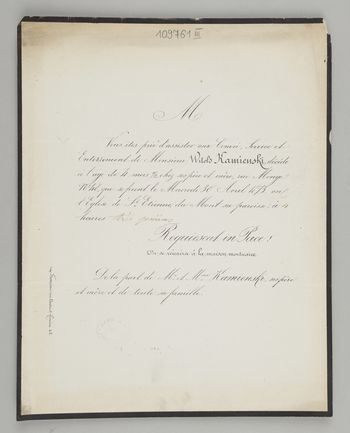 109761 III
M
Vous êtes prié d'assister aux Convoi, Service et
Enterrement de Monsieur Witold Kamienski, décédé
à l'âge de 4 mois ½ chez ses père et mère, rue Monge
Nº qui se feront le Mercredi 30 Avril 1873 en
l'Eglise de St Etienne du Mont sa paroisse, à 4
heures très précises
Requiescat in Pace!
On se réunira à la maison mortuaire
De la part de Mr et Mme Kamienski, ses père
et mère et de toute sa famille.